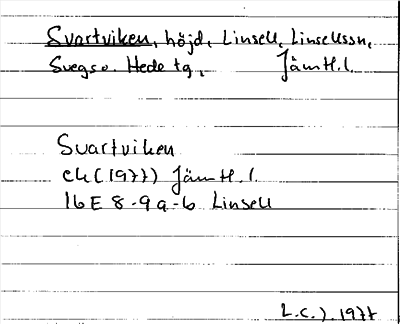 Svartviken, höjd, Linsell, Linsellssn,
Svegs o. Hede tg, Jämtl.l.
Svartviken
ek (1977) Jämtl.l.
16E 8-9a-b Linsell
L.C.J. 1977